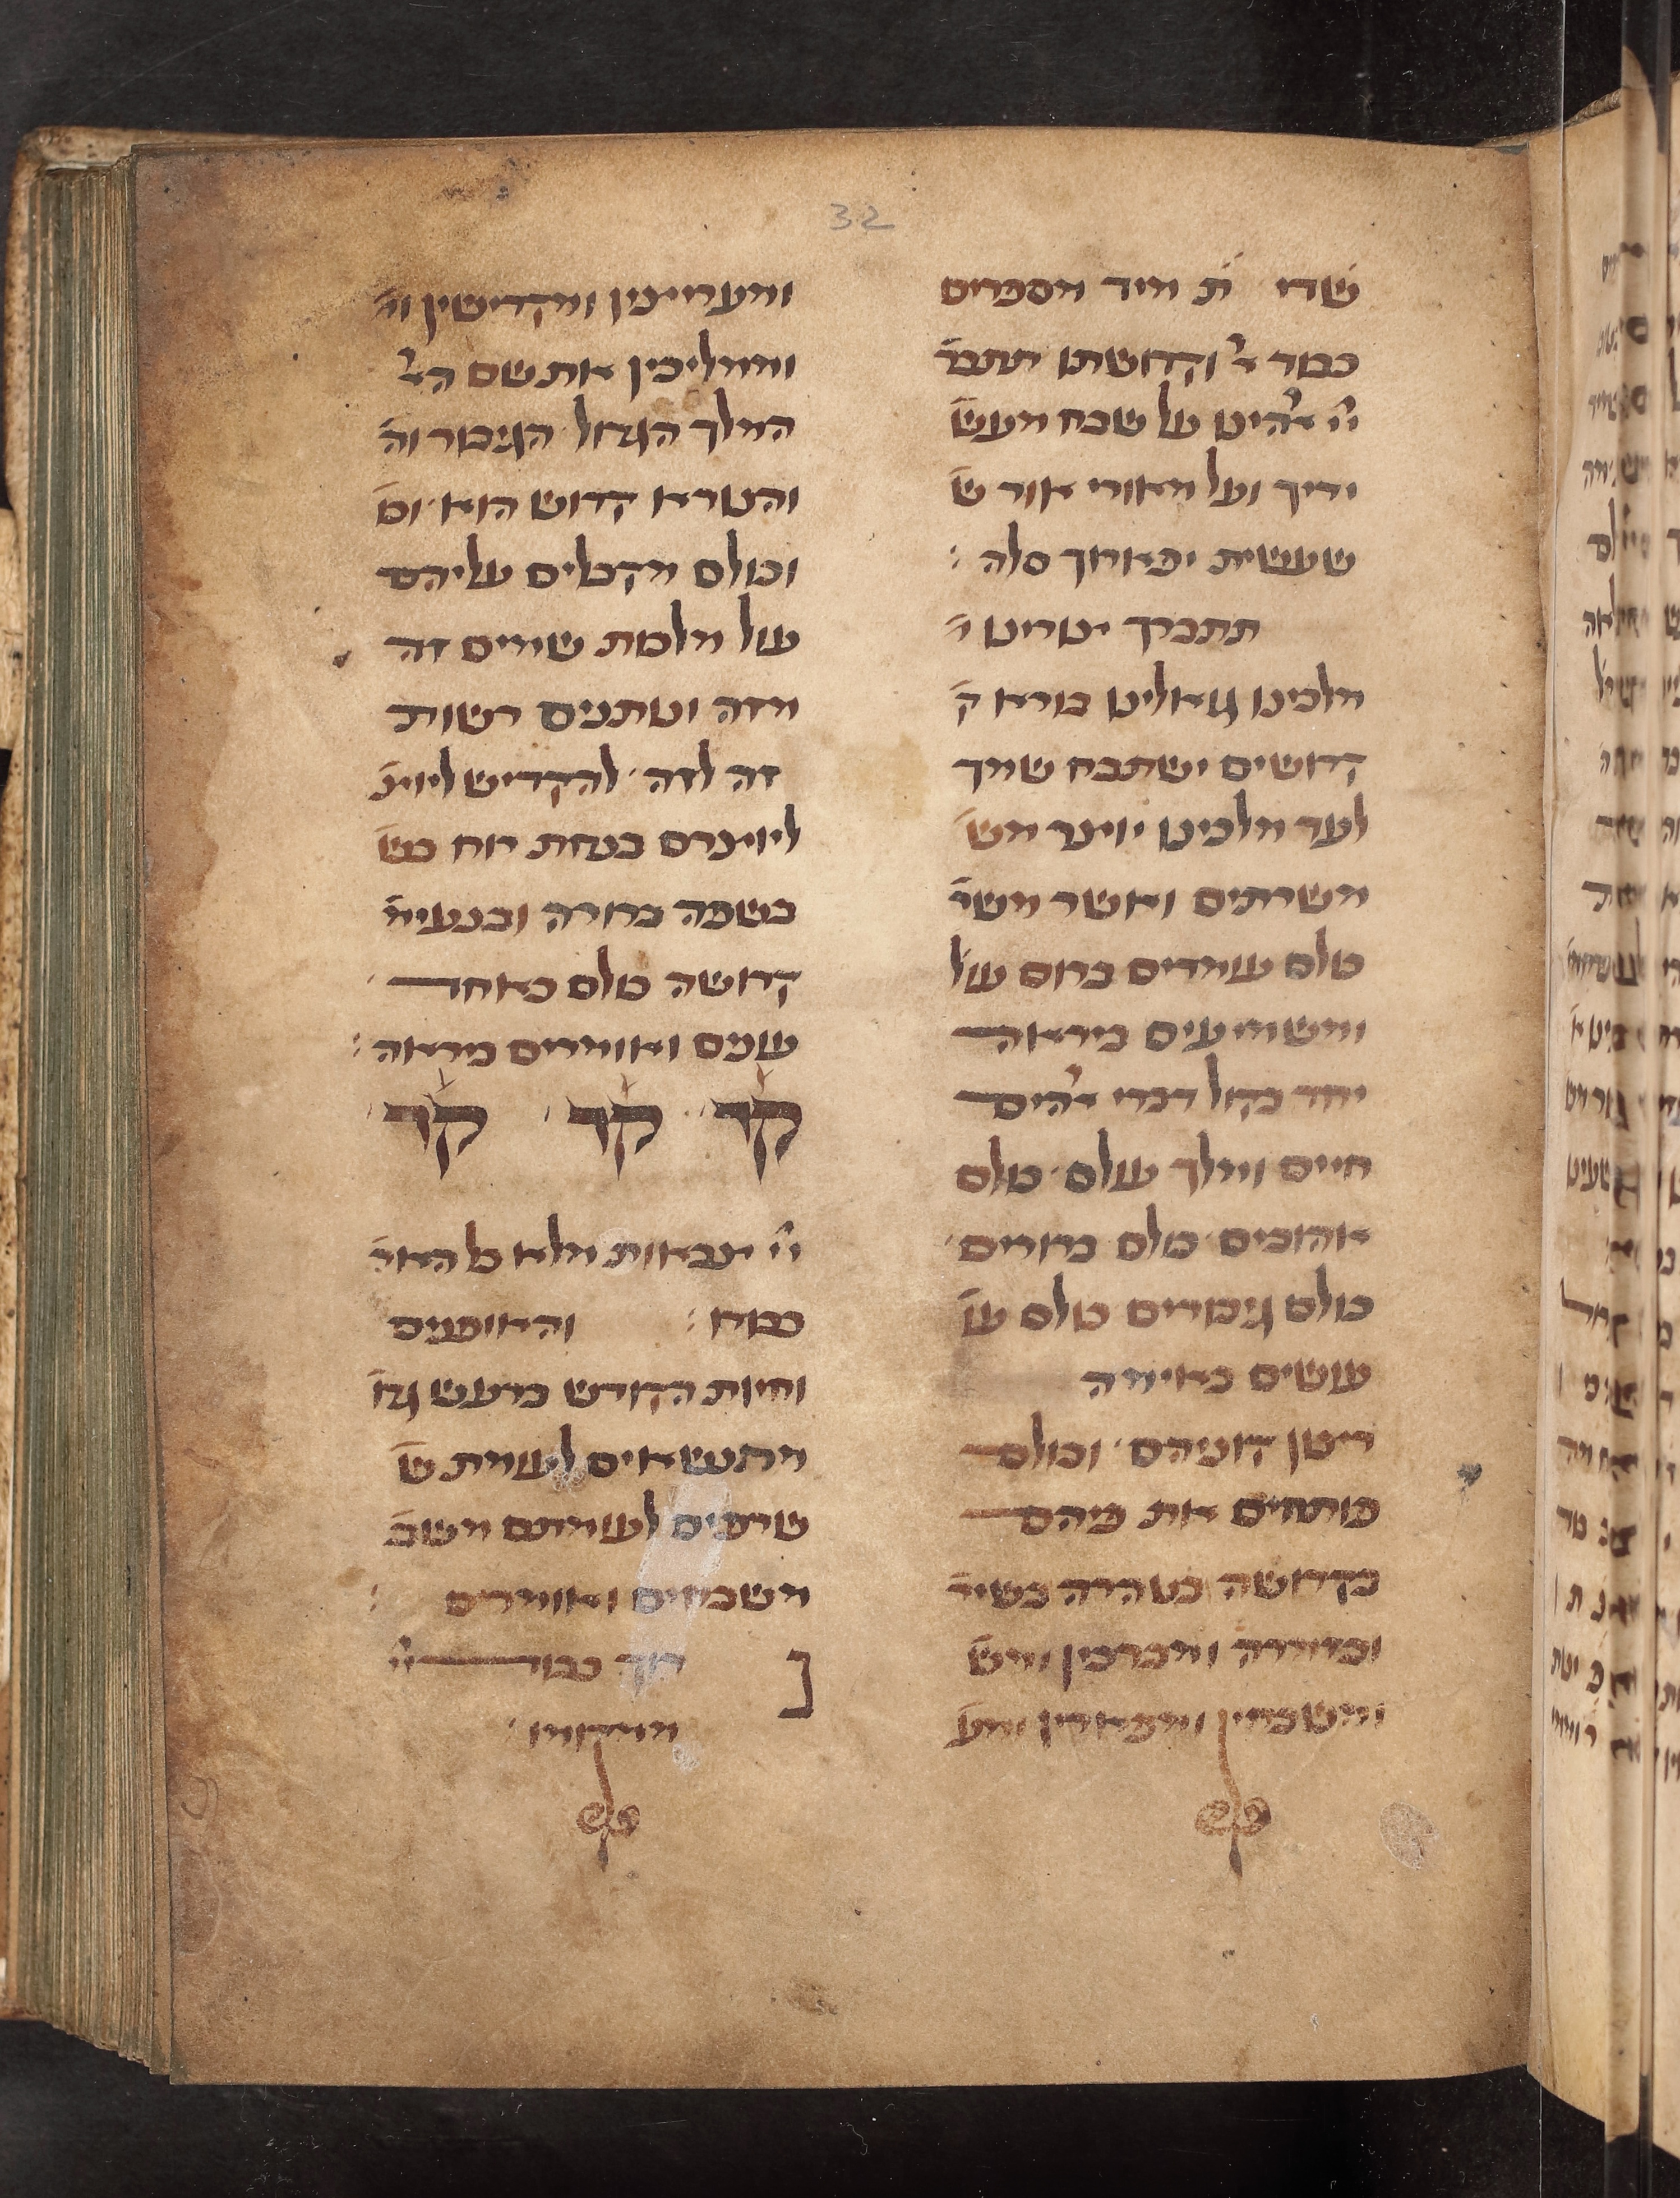 32
שדי ת̇ מיד מספרים
כבוד א̇ל וקדושתו תתבר
י̇י̇ א̇להינו על שבח מעש
ידיך ועל מאורי אור ש
שעשית יפארוך סלה :
תתברך יוצרינו י
מלכינו גואלינו בורא ק
קדושים ישתבח שמך
לעד מלכינו יוצר מש
משרתים ואשר משר
כולם עומדים ברום על
ומשמיעים ביראה
יחד בקול דברי א̇להים
חיים ומלך עולם כולם
אהובים כולם ברורים
כולם גיבורים כולם ע
עושים באימה
רצון קוניהם וכולם
פותחים את פיהם
בקדושה בטהרה בשיר
ובזמרה ומברכין ומש
ומשבחין ומפארין ומע
ומעריצין ומקדישין ומ
וממליכין את שם הא̇ל
המלך הגדול הגיבור וה
והנורא קדוש הוא וכ
וכולם מקבלים עליהם
עול מלכות שמים זה
מזה ונותנים רשות
זה לזה להקדיש ליוצ
ליוצרם בנחת רוח בש
בשפה ברורה ובנעימ
קדושה כולם כאחד
עונים ואומרים ביראה :
קד קד קד
י̇י̇ צבאות מלא כל האר
כבודו : והאופנים
וחיות הקודש ברעש גדו
מתנשאים לעומת ש
שרפים לעומתם משב
משבחים ואומרים :
ב רוך כבוד י̇י̇
ממקומו